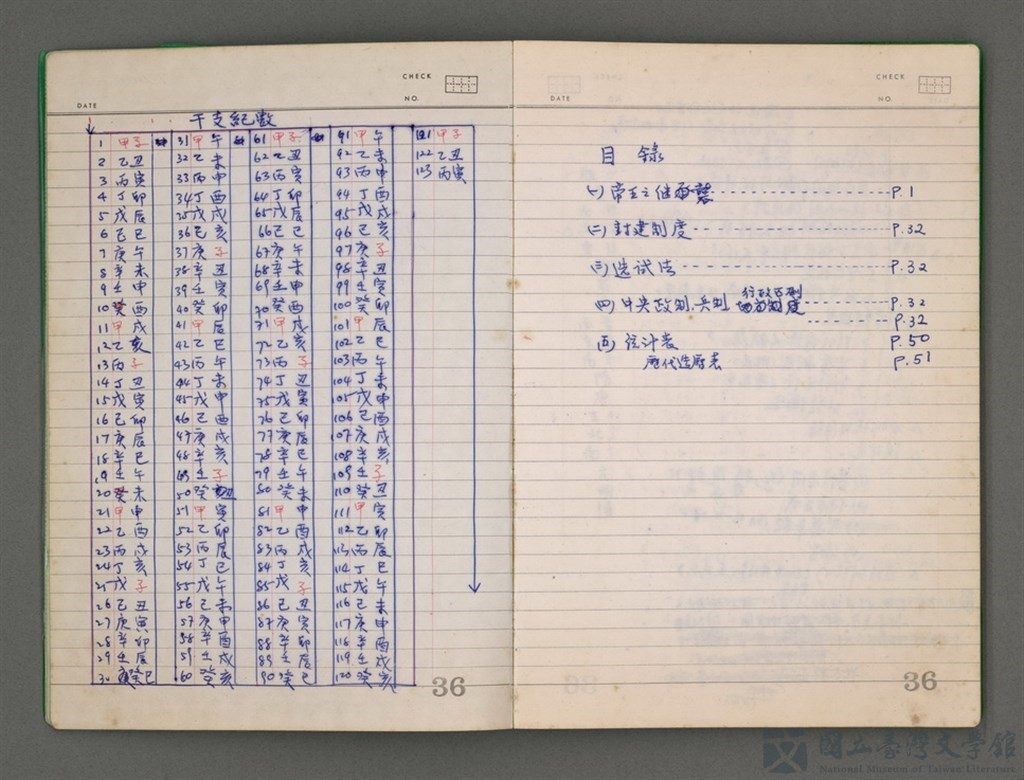 CHECK
DATE
NO.
干支紀數
1 甲子 31 甲午 61 甲子 91 甲午 121 甲子
2 乙丑 32 乙未 62 乙丑 92 乙未 122 乙丑
3 丙寅 33 丙申 63 丙寅 93 丙申 123 丙寅
4 丁卯 34 丁酉 64 丁卯 94 丁酉
5 戊辰 35 戊戌 65 戊辰 95 戊戌
6 己巳 36 己亥 66 己巳 96 己亥
7 庚午 37 庚子 67 庚午 97 庚子
8 辛未 38 辛丑 68 辛未 98 辛丑
9 壬申 39 壬寅 69 壬申 99 壬寅
10 癸酉 40 癸卯 70 癸酉 100 癸卯
11 甲戌 41 甲辰 71 甲戌 101 甲辰
12 乙亥 42 乙巳 72 乙亥 102 乙巳
13 丙子 43 丙午 73 丙子 103 丙午
14 丁丑 44 丁未 74 丁丑 104 丁未
15 戊寅 45 戊申 75 戊寅 105 戊申
16 己卯 46 己酉 76 己卯 106 己酉
17 庚辰 47 庚戌 77 庚辰 107 庚戌
18 辛巳 48 辛亥 78 辛巳 108 辛亥
19 壬午 49 壬子 79 壬午 109 壬子
20 癸未 50 癸丑 80 癸未 110 癸丑
21 甲申 51 甲寅 81 甲申 111 甲寅
22 乙酉 52 乙卯 82 乙酉 112 乙卯
23 丙戌 53 丙辰 83 丙戌 113 丙辰
24 丁亥 54 丁巳 84 丁亥 114 丁巳
25 戊子 55 戊午 85 戊子 115 戊午
26 己丑 56 己未 86 己丑 116 己未
27 庚寅 57 庚申 87 庚寅 117 庚申
28 辛卯 58 辛酉 88 辛卯 118 辛酉
29 壬辰 59 壬戌 89 壬辰 119 壬戌
30 癸巳 60 癸亥 90 癸巳 120 癸亥
36
CHECK
DATE
NO.
目錄
(一)帝王之継承 P.1
(二)封建制度 P.32
(三)选试法 P.32
(四)中央政制、兵制、行政区划 P.32
制度 P.32
(五)统计表 P.50
歴代造歴表 P.51
36
國立臺灣文學館
National Museum of Taiwan Literature